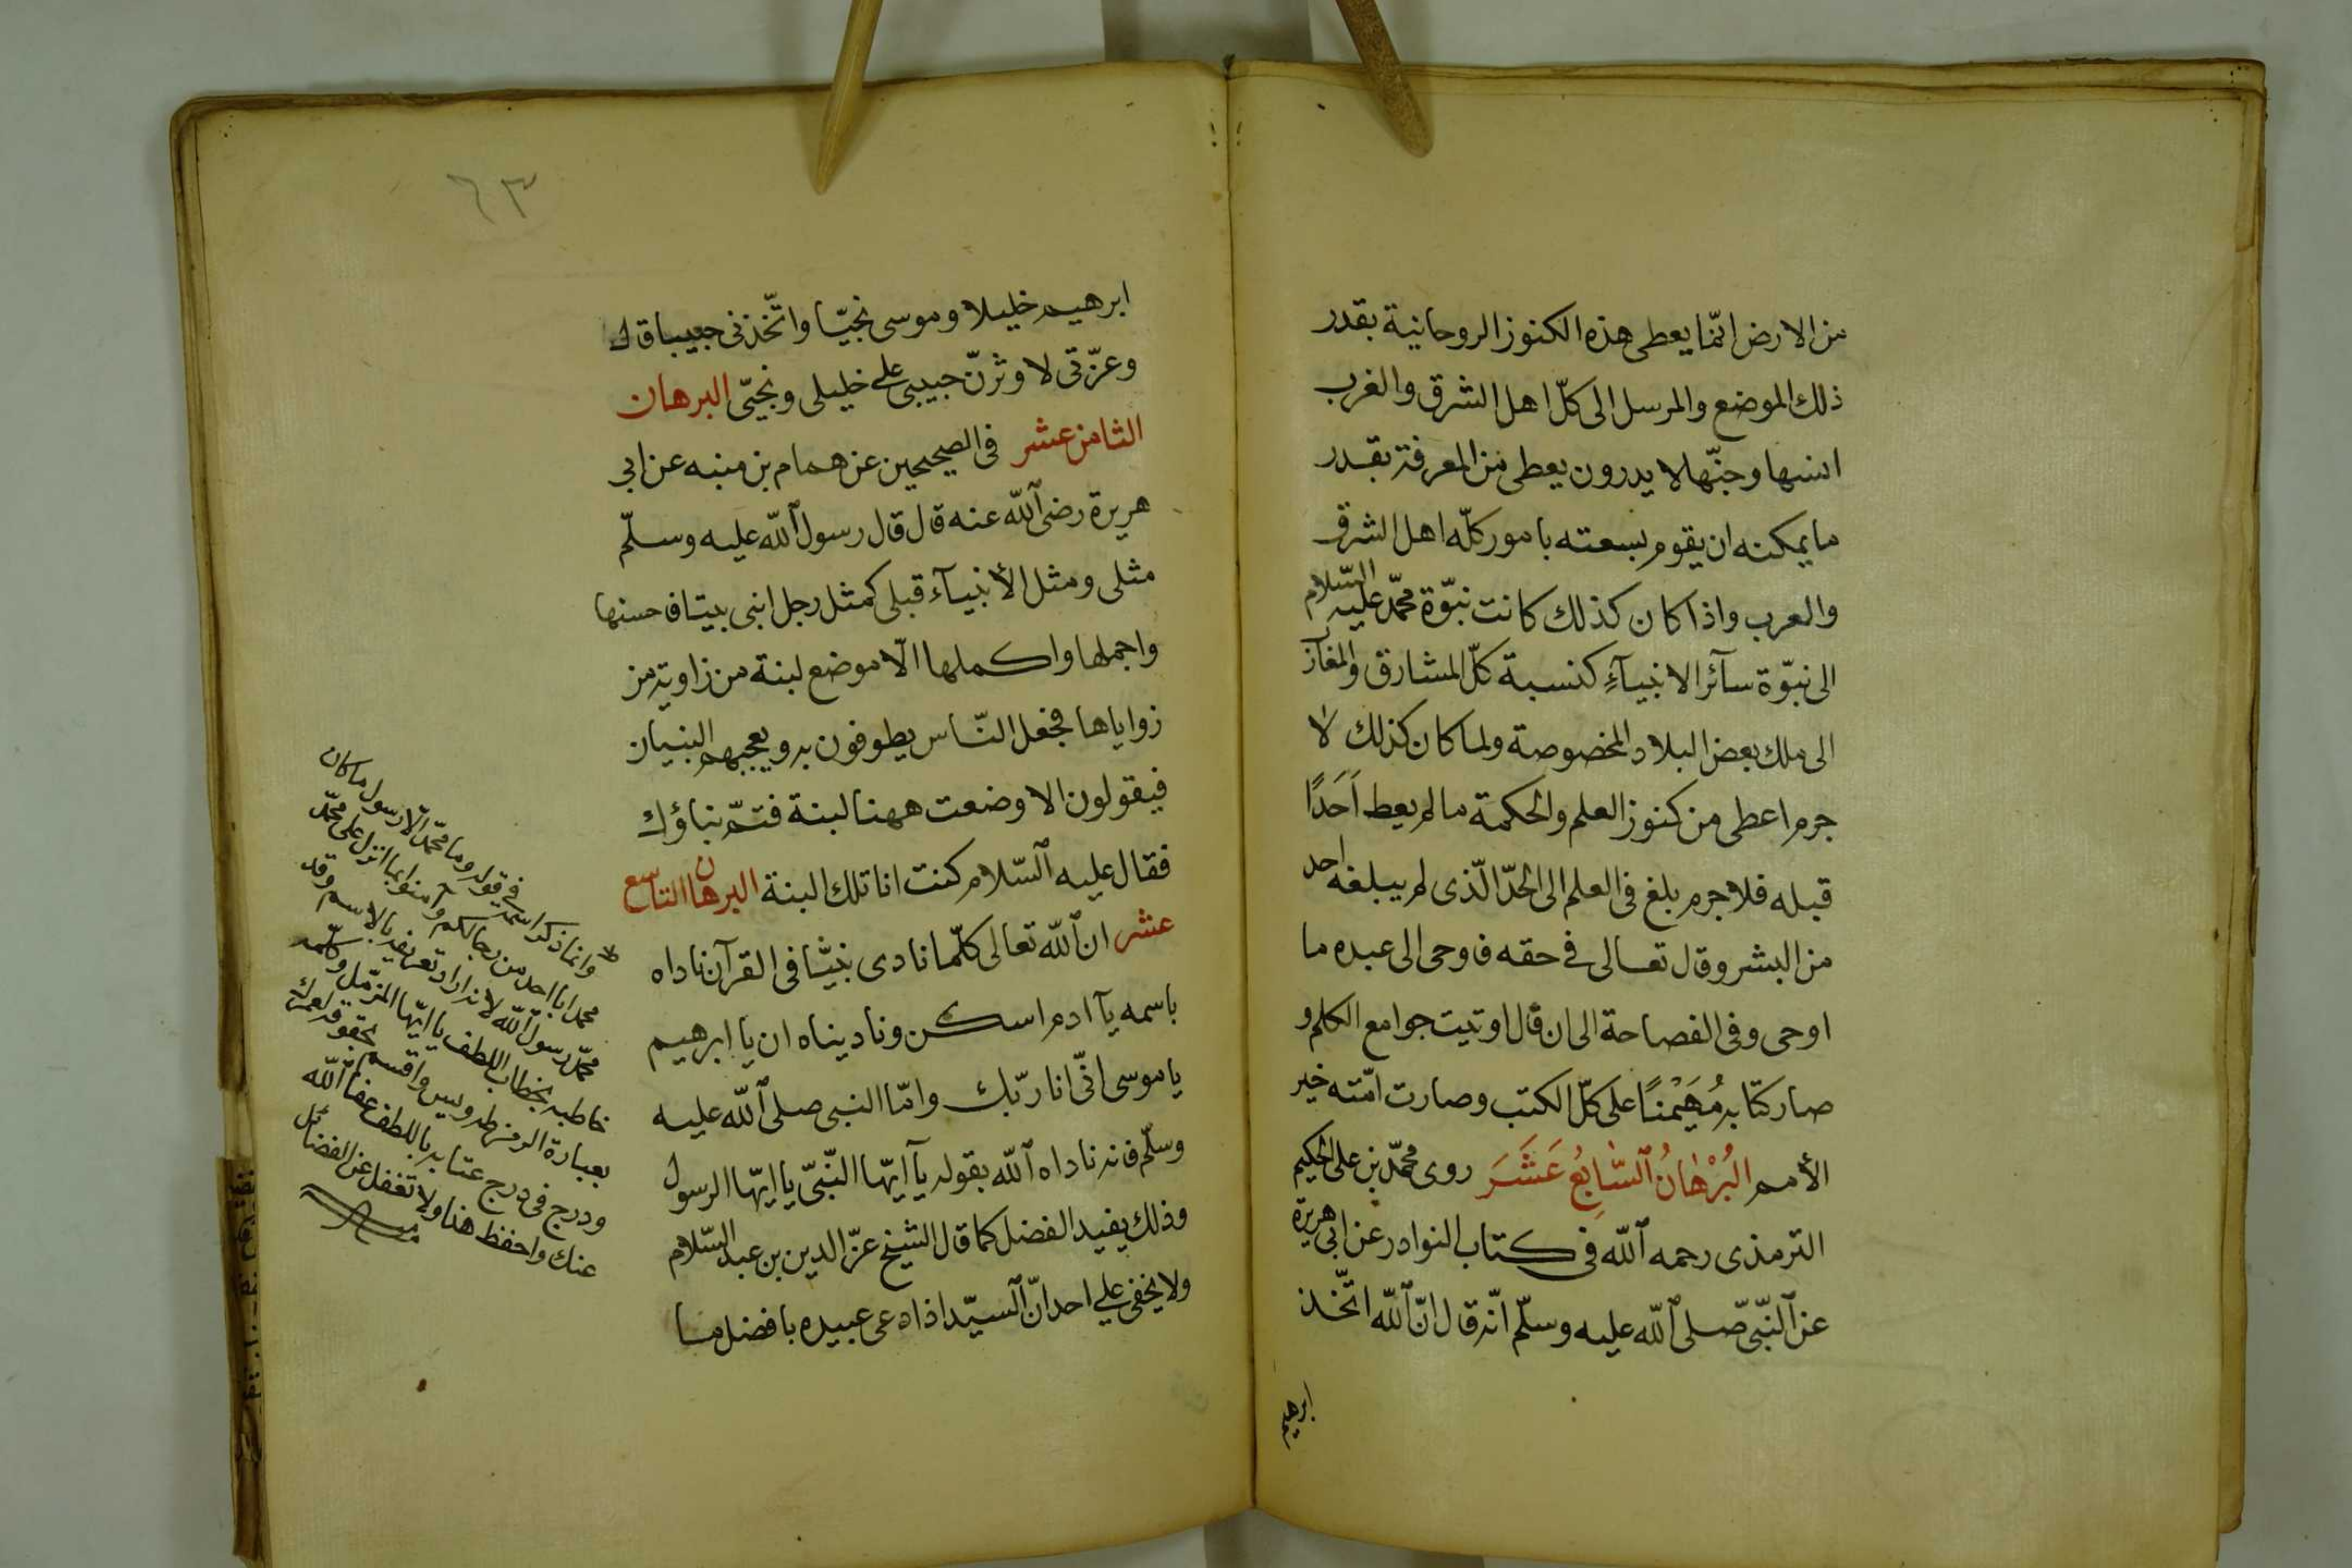 من الارض انّما يعطى هذه الكنوز الروحانية بقدر
ذلك الموضع والمرسل الى كلّ اهل الشرق والغرب
انسها وجنّها لا يدرون يعطى من المعرفة بقدر
ما يمكنه ان يقوم بسعته بامور كلّه اهل الشرق
والعرب واذا كان كذلك كانت نبوّة محمّد عليه السّلام
الى نبوّة سآئر الانبيآءِ كنسبة كلّ المشارق والمغآز
الى ملك بعض البلاد المخصوصة ولما كان كذلك لا
جرم اعطى من كنوز العلم والحكمة ما لم يعط اَحَدًا
قبله فلا جرم بلغ فى العلم الى الحدّ الّذى لم يبلغه احد
من البشر وقال تعالى فى حقه فاوحى الى عبده ما
اوحى وفى الفصاحة الى ان قال اوتيت جوامع الكلم و
صار كتابه مُهَيْمنًا على كلّ الكتب وصارت امّته خير
الأمم البُرْهٰانُ ٱلسَّابِعُ عَشَرَ روى محمّد بن على الحكيم
الترمذى رحمه ٱللّه فى كتاب النوادر عن ابى هريرة
عن ٱلنّبّى صّلى ٱللّه عليه وسلّم انّه قال انّ ٱللّه اتّخذ
ابرهيم
٦٣
ابرهيم خليلا وموسى نجيّا واتّخذنى حبيبا قال
وعزّتى لاوثرنّ حبيبى على خليلى ونجيّى البرهان
الثامن عشر فى الصحيحين عن همام بن منبه عن ابى
هريرة رضى ٱللّه عنه قال قال رسول ٱللّه عليه وسلّم
مثلى ومثل الأنبيآء قبلى كمثل رجل ابنى بيتا فاحسنها
واجملها واكملها الّا موضع لبنة من زاوية من
زواياها فجعل النّاس يطوفون به ويعجبهم البنيان
فيقولون الا وضعت ههنا لبنة فتمّ بناؤك
فقال عليه ٱلسّلام كنت انا تلك البنة البرهان التاسع
عشر ان ٱللّه تعالى كلّما نادى نبيّا فى القرآن ناداه
باسمه يآ ادم اسكن وناديناه ان يا ابرهيم
يا موسى انّى انا ربّك وامّا النبى صلى ٱللّه عليه
وسلّم فانه ناداه ٱللّه بقوله يآ ايّها النّبّى يا ايّها الرسول
وذلك يفيد الفضل كما قال الشيخ عزّ الدين بن عبد السّلام
ولا يخفى على احد انّ ٱلسيّد اذا دعى عبيده بافضل ما
وانما ذكر اسمه فى قوله وما محمّد الّا رسول ما كان
محمد ابا احد من رجالكم وآمنوا بما انزل على محمّد
محمّد رسول ٱللّه لانه اراد تعريفه بالاسم وقد
خاطبه بخطاب اللطف يا ايّها المزمّل وكلّمه
بعبارة الرمز طه ويس واقسم بحقوقه لعمرك
ودرج فى درج عتابه باللطف عفا ٱللّه
عنك واحفظ هذا ولا تغفل عن الفضائل